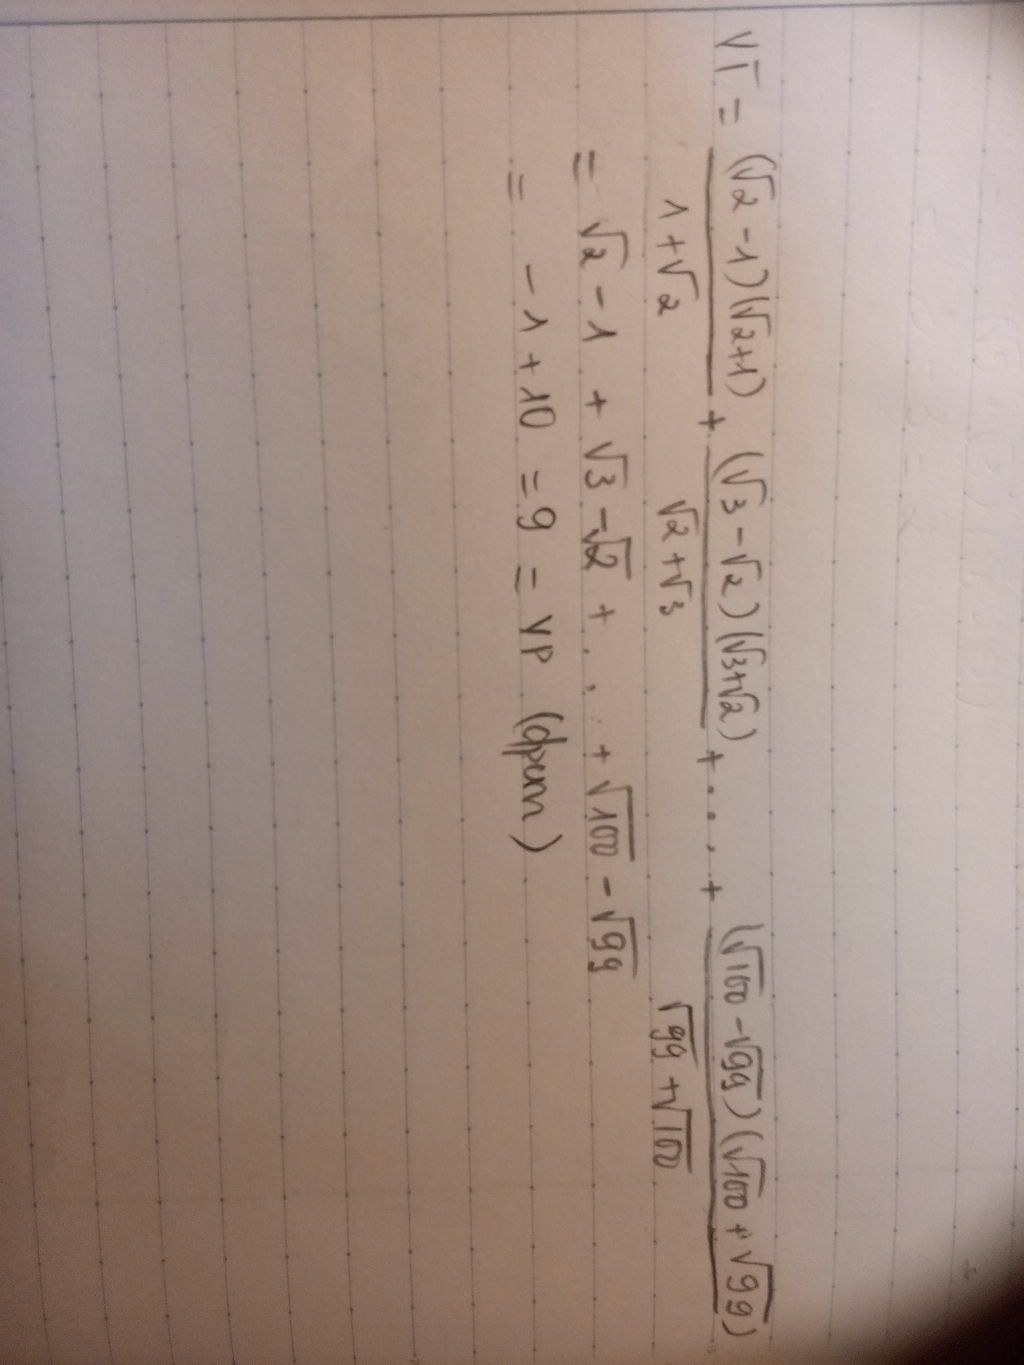 VT = (√2 - 1)(√2+1) / 1+√2 + (√3 - √2)(√3+√2) / √2 + √3 + ... + (√100 - √99)(√100 + √99) / √99 + √100
= √2 - 1 + √3 - √2 + ... + √100 - √99
= - 1 + 10 = 9 = VP (đpcm)